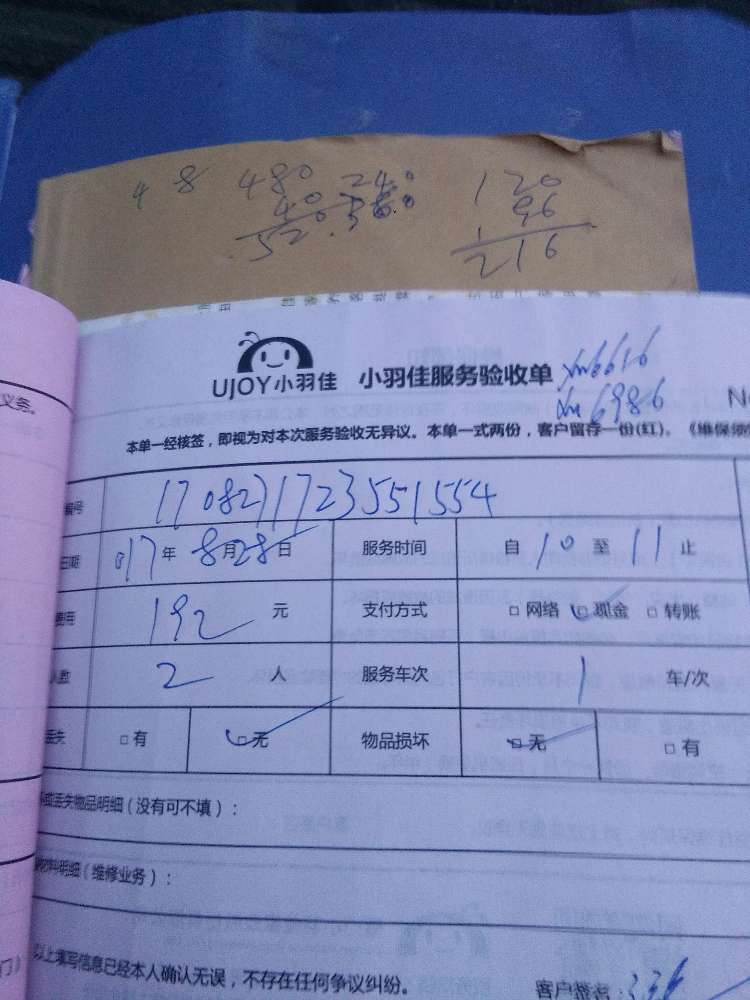 4 8 480 240 120
40 96
520 216
UJOY小羽佳 小羽佳服务验收单 xm6616
xm6986
本单一经核签，即视为对本次服务验收无异议。本单一式两份，客户留存一份(红)。《维保须
义务。
编号 1708271723551554
日期 017年 8月28日 服务时间 自 10 至 11 止
费用 192 元 支付方式 □网络 □现金 □转账
人数 2 人 服务车次 1 车/次
丢失 □有 □无 物品损坏 □无 □有
或丢失物品明细（没有可不填）：
材料明细（维修业务）：
以上填写信息已经本人确认无误，不存在任何争议纠纷。
客户签名：
门）